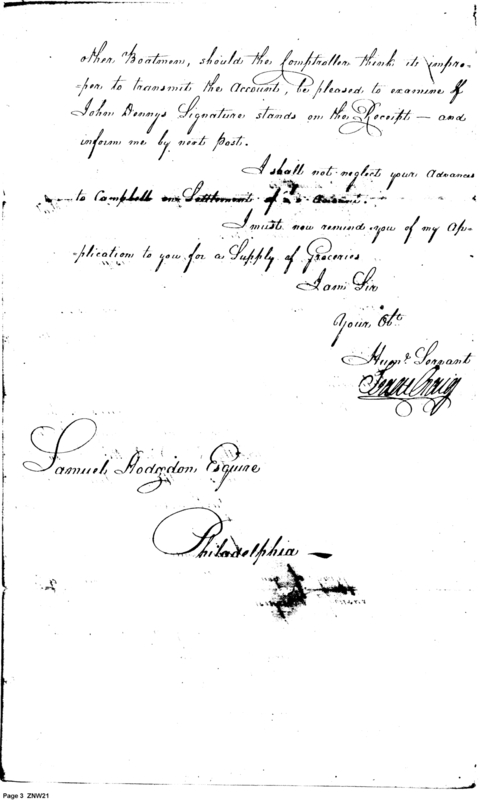 other Boatmen, should the Comptroller think it impro-
-per to transmit the account, be pleased to examine if
John Dennys Signature stands on the Receipt — and
inform me by next post.
I shall not neglect your advances
to Campbell on Settlement of
I must now remind you of my ap-
-plication to you for a Supply of Groceries
I am Sir
Your Obt
Humr. Servant
Isaac Craig
Samuel Hodgdon Esquire
Philadelphia —
Page 3 ZNW21